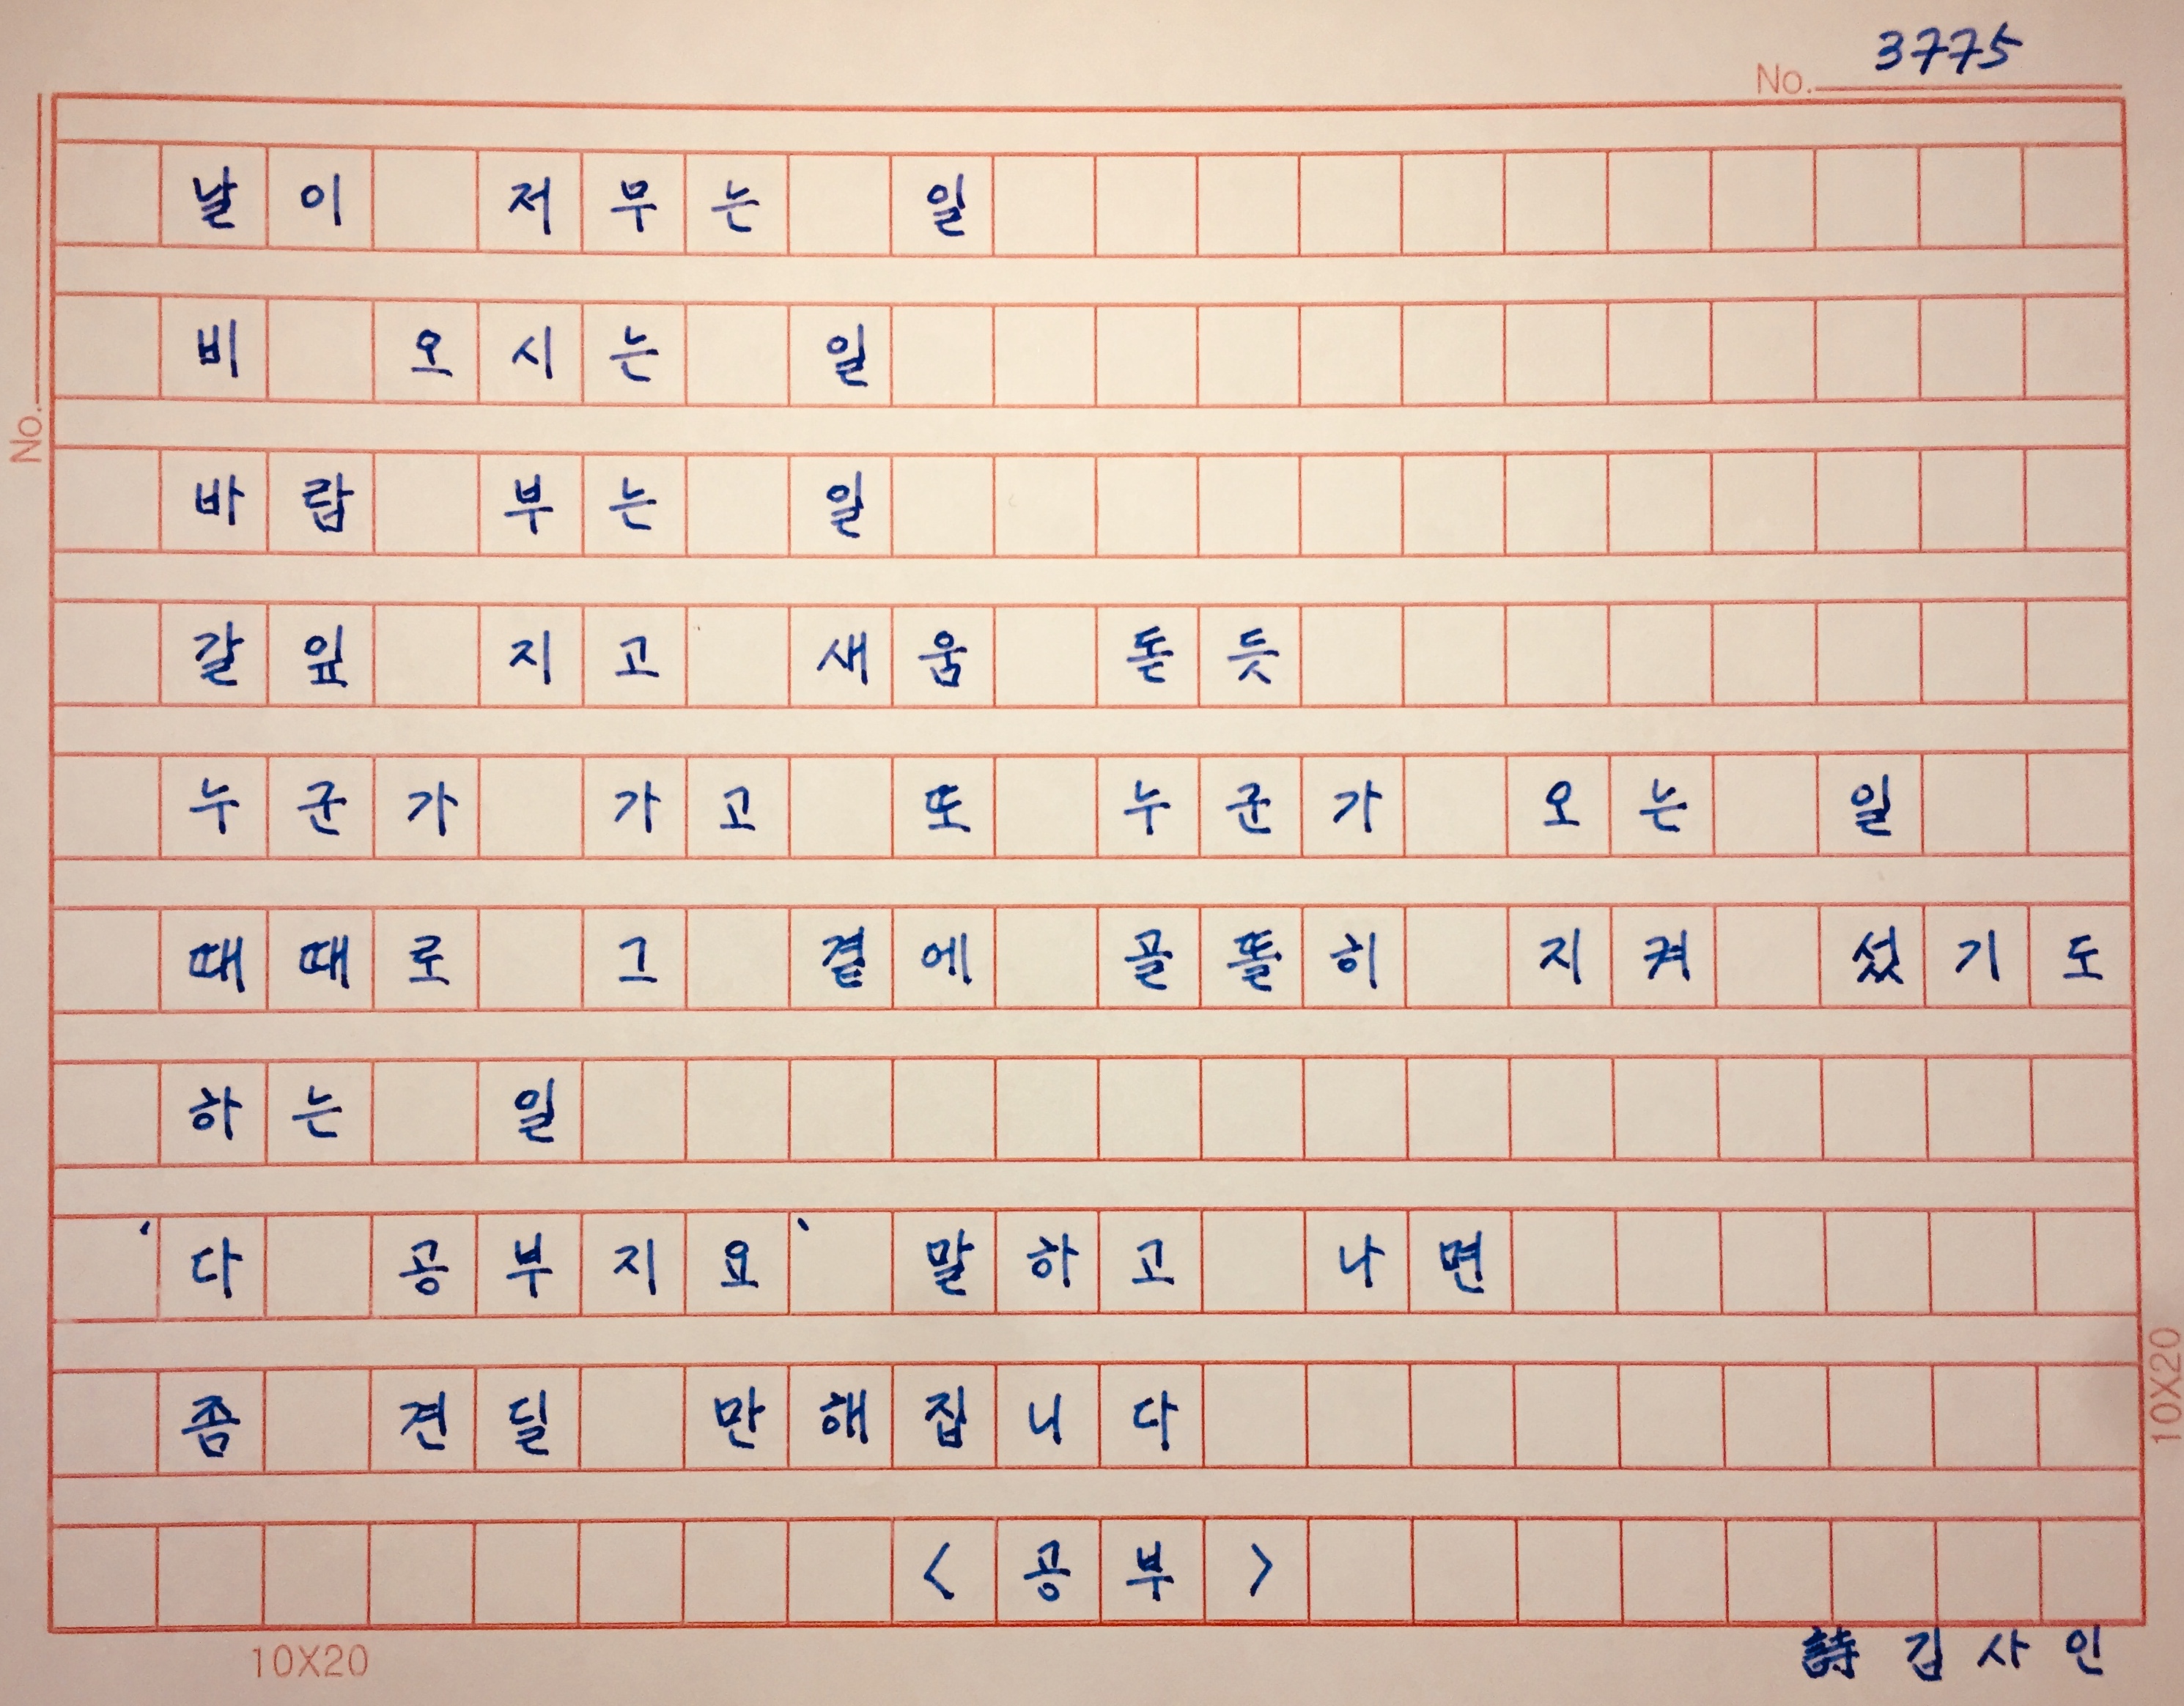 No. 3775
날이 저무는 일
비 오시는 일
바람 부는 일
갈잎 지고 새움 돋듯
누군가 가고 또 누군가 오는 일
때때로 그 곁에 골똘히 지켜 섰기도
하는 일
‘다 공부지요’ 말하고 나면
좀 견딜 만해집니다
<공부>
詩 김사인
10X20
No.
10X20